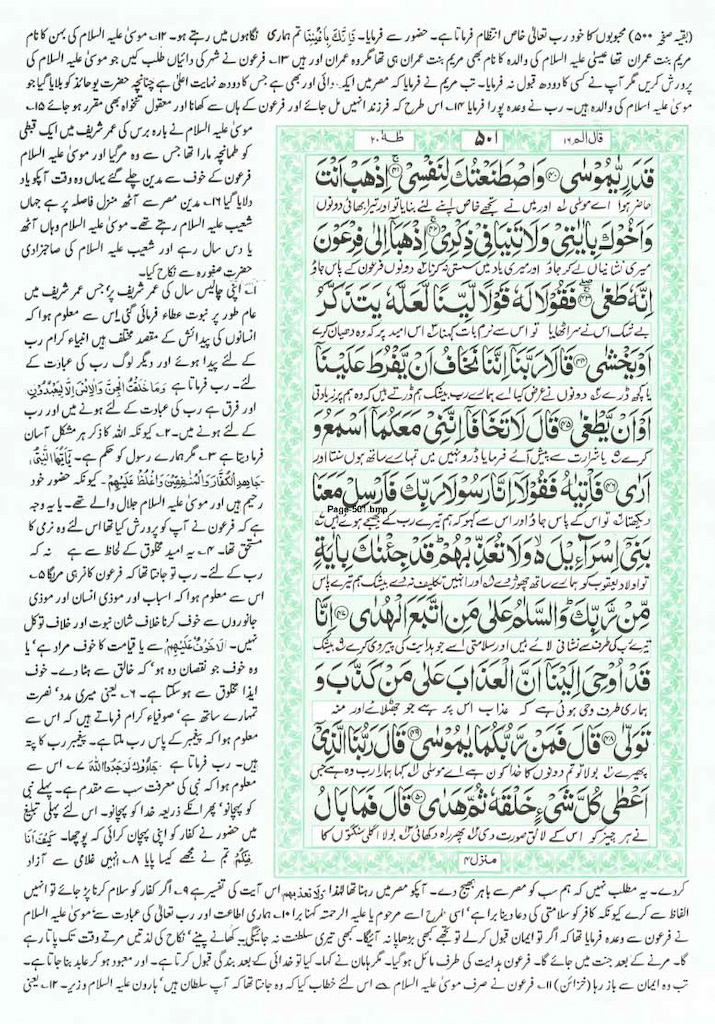 (بقیہ صفحہ ۵۰۰) محبوبوں کا خود رب تعالیٰ خاص انتظام فرماتا ہے۔ حضور سے فرمایا۔ فَاِنَّكَ بِاَعْيُنِنَا تم ہماری نگاہوں میں رہتے ہو۔ ۱۲۔ موسیٰ علیہ السلام کی بہن کا نام
مریم بنت عمران تھا عیسیٰ علیہ السلام کی والدہ کا نام بھی مریم بنت عمران ہی تھا مگر وہ عمران اور ہیں ۱۳۔ فرعون نے شہر کی دائیاں طلب کیں جو موسیٰ کی
پرورش کریں مگر آپ نے کسی کا دودھ قبول نہ فرمایا۔ تب مریم نے فرمایا کہ مصر میں ایک دائی اور بھی ہے جس کا دودھ نہایت اعلیٰ ہے چنانچہ حضرت یوحانذ کو بلایا گیا جو
موسیٰ علیہ السلام کی والدہ ہیں۔ رب نے وعدہ پورا فرمایا ۱۴۔ اس طرح کہ فرزند انہیں مل جائے اور فرعون کے ہاں سے کھانا اور معقول تنخواہ بھی مقرر ہو جائے ۱۵۔
موسیٰ علیہ السلام نے بارہ برس کی عمر شریف میں ایک قبطی
کو طمانچہ مارا تھا جس سے وہ مر گیا اور موسیٰ علیہ السلام
فرعون کے خوف سے مدین چلے گئے یہاں وہ وقت آپکو یاد
دلایا گیا ۱۶۔ مدین مصر سے آٹھ منزل فاصلہ پر ہے جہاں
شعیب علیہ السلام رہتے تھے۔ موسیٰ علیہ السلام وہاں آٹھ
یا دس سال رہے اور شعیب علیہ السلام کی صاحبزادی
حضرت صفورہ سے نکاح کیا۔
۱۔ اپنی چالیس سال کی عمر شریف پر، جس عمر شریف میں
عام طور پر نبوت عطاء فرمائی گئی۔ اس سے معلوم ہوا کہ
انسانوں کی پیدائش کے مقصد مختلف ہیں انبیاء کرام رب
کے لئے پیدا ہوئے اور دیگر لوگ رب کی عبادت کے
لئے۔ رب فرماتا ہے وَمَا خَلَقْتُ الْجِنَّ وَالْاِنْسَ اِلَّا لِيَعْبُدُوْنِ
اور فرق ہے رب کی عبادت کے لئے ہونے میں اور رب
کے لئے ہونے میں۔ ۲۔ کیونکہ اللہ کا ذکر ہر مشکل آسان
فرما دیتا ہے ۳۔ مگر ہمارے رسول کو حکم ہے۔ يٰٓاَيُّهَا النَّبِيُّ
جَاهِدِ الْكُفَّارَ وَالْمُنٰفِقِيْنَ وَاغْلُظْ عَلَيْهِمْ۔ کیونکہ حضور خود
رحیم ہیں اور موسیٰ علیہ السلام جلال والے تھے۔ یا یہ وجہ
ہے کہ فرعون نے آپ کو پرورش کیا تھا اس لئے وہ نرمی کا
مستحق تھا۔ ۴۔ یہ امید مخلوق کے لحاظ سے ہے نہ کہ
رب کے لئے۔ رب تو جانتا تھا کہ فرعون کافر ہی مریگا ۵۔
اس سے معلوم ہوا کہ اسباب اور موذی انسان اور موذی
جانوروں سے خوف کرنا خلاف شان نبوت اور خلاف توکل
نہیں۔ اَلَا خَوْفٌ عَلَيْهِمْ سے یا قیامت کا خوف مراد ہے، یا
وہ خوف جو نقصان دہ ہو، کہ خالق سے ہٹا دے۔ خوف
ایذا مخلوق سے ہو سکتا ہے۔ ۶۔ یعنی میری مدد، نصرت
تمہارے ساتھ ہے، صوفیاء کرام فرماتے ہیں کہ اس سے
معلوم ہوا کہ پیغمبر کے پاس رب ملتا ہے۔ پیغمبر رب کا پتہ
ہیں۔ رب فرماتا ہے جَآءُوْكَ لَوَجَدُوا اللّٰهَ ۷۔ اس سے
معلوم ہوا کہ نبی کی معرفت سب سے مقدم ہے۔ پہلے نبی
کو پہچانو، پھر انکے ذریعہ خدا کو پہچانو۔ اس لئے پہلی تبلیغ
میں حضور نے کفار کو اپنی پہچان کرائی کہ پوچھا۔ كَيْفَ اَنَا
فِيْكُمْ تم نے مجھے کیسا پایا ۸۔ انہیں غلامی سے آزاد
قال الم ۱۶
۵۰۱
طٰهٰ ۲۰
قَدَرٍ يّٰمُوْسٰى ۝۴۰ وَاصْطَنَعْتُكَ لِنَفْسِيْ ۝۴۱ اِذْهَبْ اَنْتَ
حاضر ہوا اے موسیٰ اور میں نے تجھے خاص اپنے لئے بنایا تو اور تیرا بھائی دونوں
وَاَخُوْكَ بِاٰيٰتِيْ وَلَا تَنِيَا فِيْ ذِكْرِيْ ۝۴۲ اِذْهَبَآ اِلٰى فِرْعَوْنَ
میری نشانیاں لے کر جاؤ اور میری یاد میں سستی نہ کرنا دونوں فرعون کے پاس جاؤ
اِنَّهٗ طَغٰى ۝۴۳ فَقُوْلَا لَهٗ قَوْلًا لَّيِّنًا لَّعَلَّهٗ يَتَذَكَّرُ
بے شک اس نے سر اٹھایا تو اس سے نرم بات کہنا اس امید پر کہ وہ دھیان کرے
اَوْ يَخْشٰى ۝۴۴ قَالَا رَبَّنَآ اِنَّنَا نَخَافُ اَنْ يَّفْرُطَ عَلَيْنَآ
یا کچھ ڈرے دونوں نے عرض کیا اے ہمارے رب بیشک ہم ڈرتے ہیں کہ وہ ہم پر زیادتی
اَوْ اَنْ يَّطْغٰى ۝۴۵ قَالَ لَا تَخَافَآ اِنَّنِيْ مَعَكُمَآ اَسْمَعُ وَ
کرے یا شرارت سے پیش آئے فرمایا ڈرو نہیں میں تمہارے ساتھ ہوں سنتا اور
اَرٰى ۝۴۶ فَاْتِيٰهُ فَقُوْلَآ اِنَّا رَسُوْلَا رَبِّكَ فَاَرْسِلْ مَعَنَا
Page-501.bmp
دیکھتا تو اس کے پاس جاؤ اور اس سے کہو کہ ہم تیرے رب کے بھیجے ہوئے ہیں
بَنِيْٓ اِسْرَآءِيْلَ وَلَا تُعَذِّبْهُمْ قَدْ جِئْنٰكَ بِاٰيَةٍ
تو اولاد یعقوب کو ہمارے ساتھ چھوڑ دے اور انہیں تکلیف نہ دے بیشک ہم تیرے پاس
مِّنْ رَّبِّكَ وَالسَّلٰمُ عَلٰى مَنِ اتَّبَعَ الْهُدٰى ۝۴۷ اِنَّا
تیرے رب کی طرف سے نشانی لائے ہیں اور سلامتی اسے جو ہدایت کی پیروی کرے بیشک
قَدْ اُوْحِيَ اِلَيْنَآ اَنَّ الْعَذَابَ عَلٰى مَنْ كَذَّبَ وَ
ہماری طرف وحی ہوئی ہے کہ عذاب اس پر ہے جو جھٹلائے اور منہ
تَوَلّٰى ۝۴۸ قَالَ فَمَنْ رَّبُّكُمَا يٰمُوْسٰى ۝۴۹ قَالَ رَبُّنَا الَّذِيْٓ
پھیرے بولا تو تم دونوں کا خدا کون ہے اے موسیٰ کہا ہمارا رب وہ ہے جس
اَعْطٰى كُلَّ شَيْءٍ خَلْقَهٗ ثُمَّ هَدٰى ۝۵۰ قَالَ فَمَا بَالُ
نے ہر چیز کو اس کے لائق صورت دی پھر راہ دکھائی بولا اگلی سنگتوں کا
منزل ۴
کردے۔ یہ مطلب نہیں کہ ہم سب کو مصر سے باہر بھیج دے۔ آپکو مصر میں رہنا تھا لہٰذا وَلَا تُعَذِّبْهُمْ اس آیت کی تفسیر ہے ۹۔ اگر کفار کو سلام کرنا پڑ جائے تو انہیں
الفاظ سے کرے کیونکہ کافر کو سلامتی کی دعا دینا برا ہے، اسی طرح اسے مرحوم یا علیہ الرحمتہ کہنا برا ۱۰۔ ہماری اطاعت اور رب تعالیٰ کی عبادت سے، موسیٰ علیہ السلام
نے فرعون سے وعدہ فرمایا تھا کہ اگر تو ایمان قبول کر لے تو تجھے کبھی بڑھاپا نہ آئیگا۔ کبھی تیری سلطنت نہ جائیگی۔ کھانے پینے، نکاح کی لذتیں مرتے وقت تک پاتا رہے
گا۔ مرنے کے بعد جنت میں جائے گا۔ فرعون ہدایت کی طرف مائل ہو گیا۔ مگر ہامان نے کہا۔ کیا تو خدائی کے بعد بندگی قبول کرتا ہے۔ اور معبود ہو کر عابد بنا جاتا ہے۔
تب وہ ایمان سے باز رہا (خزائن) ۱۱۔ فرعون نے صرف موسیٰ علیہ السلام سے اس لئے خطاب کیا کہ وہ جانتا تھا کہ آپ سلطان ہیں، ہارون علیہ السلام وزیر۔ ۱۲۔ یعنی